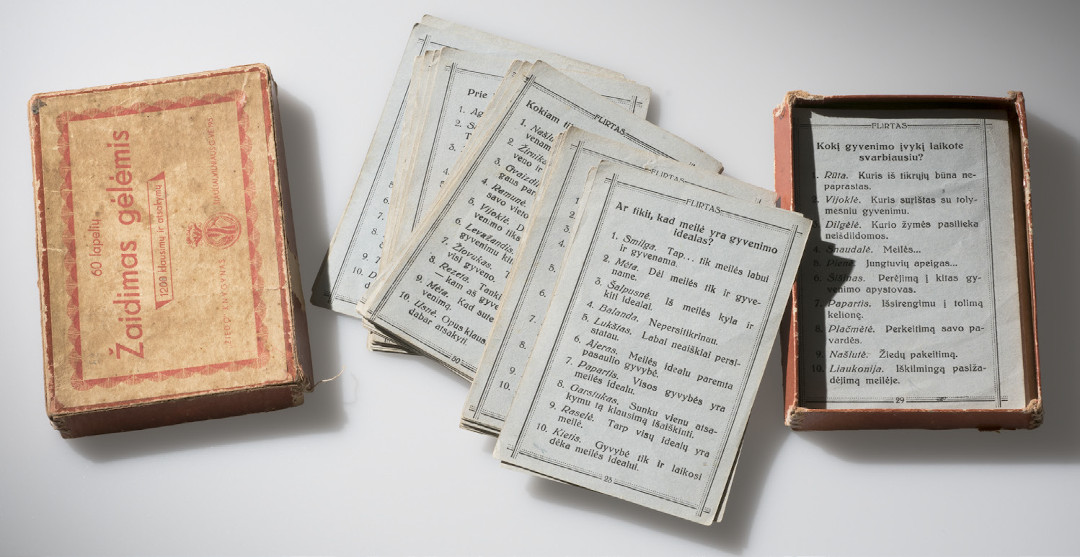 60 lapelių
Žaidimas gėlėmis
1200 klausimų ir atsakymų
Prie
1. Ag
2.
FLIRTAS
Kokiam
1. Našl
venam
2.
veno ir
3. Gvaizdi
gaus par
4. Ramunė.
savo vieto
5. Vijoklė. D
venimo tiks
6. Levažandis.
gyvenimu kit
7. Žiovukas. T
visi gyveno.
8. Rezeta. Tanki
— kam aš gyve
9. Mėta. Kad aute
venimą.
10. Usnė. Opus klaus
dabar atsakyti.
50
FLIRTAS
FLIRTAS
Ar tiki, kad meilė yra gyvenimo
idealas?
1. Smilga. Tap... tik meilės labui
ir gyvenama.
2. Mėta. Dėl meilės tik ir gyve-
name.
3. Šalpusnė. Iš meilės kyla ir
kiti idealai.
4. Balanda. Nepersitikrinau.
5. Lukštas. Labai neaiškiai persi-
statau.
6. Ajeras. Meilės idealu paremta
pasaulio gyvybė.
7. Papartis. Visos gyvybės yra
meilės idealu.
8. Garstukas. Sunku vienu atsa-
kymu tą klausimą išaiškinti.
9. Raselė. Tarp visų idealų yra
meilė.
10. Kietis. Gyvybė tik ir laikosi
dėka meilės idealui.
25
FLIRTAS
Kokį gyvenimo įvykį laikote
svarbiausiu?
1. Rūta. Kuris iš tikrųjų būna ne-
paprastas.
2. Vijoklė. Kuris surištas su toly-
mesniu gyvenimu.
3. Dilgėlė. Kurio žymės pasilieka
neišdildomos.
4. Snaudalė. Meilės...
5. Jungtuvių apeigas...
6. Perėjimą į kitas gy-
venimo apystovas.
7. Papartis. Išsirengimu į tolimą
kelionę.
8. Plačmėtė. Perkeitimą savo pa-
vardės.
9. Našlutė. Žiedų pakeitimą.
10. Liaukonija. Iškilmingą pasiža-
dėjimą meilėje.
29